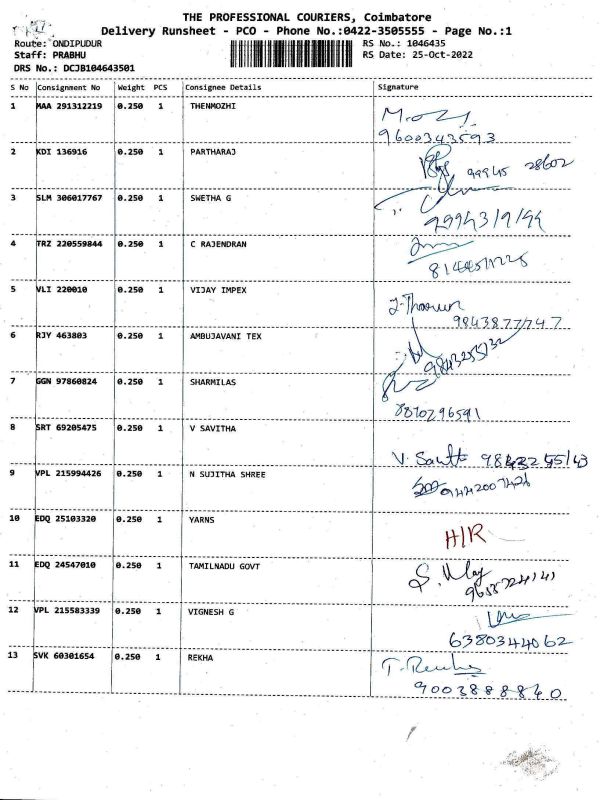 THE PROFESSIONAL COURIERS, Coimbatore
Delivery Runsheet - PCO - Phone No.:0422-3505555 - Page No.:1
Route: ONDIPUDUR
RS No.: 1046435
Staff: PRABHU
RS Date: 25-Oct-2022
DRS No.: DCJB104643501
S No Consignment No Weight PCS Consignee Details Signature
1 MAA 291312219 0.250 1 THENMOZHI
9600343593
2 KDI 136916 0.250 1 PARTHARAJ
99945 28602
3 SLM 306017767 0.250 1 SWETHA G
4 TRZ 220559844 0.250 1 C RAJENDRAN
5 VLI 220010 0.250 1 VIJAY IMPEX
9843877747
6 RJY 463803 0.250 1 AMBUJAVANI TEX
9843255132
7 GGN 97860824 0.250 1 SHARMILAS
8870296591
8 SRT 69205475 0.250 1 V SAVITHA
9 VPL 215994426 0.250 1 N SUJITHA SHREE
9442007426
10 EDQ 25103320 0.250 1 YARNS
H/R
11 EDQ 24547010 0.250 1 TAMILNADU GOVT
12 VPL 215583339 0.250 1 VIGNESH G
6380344062
13 SVK 60301654 0.250 1 REKHA
9003888840